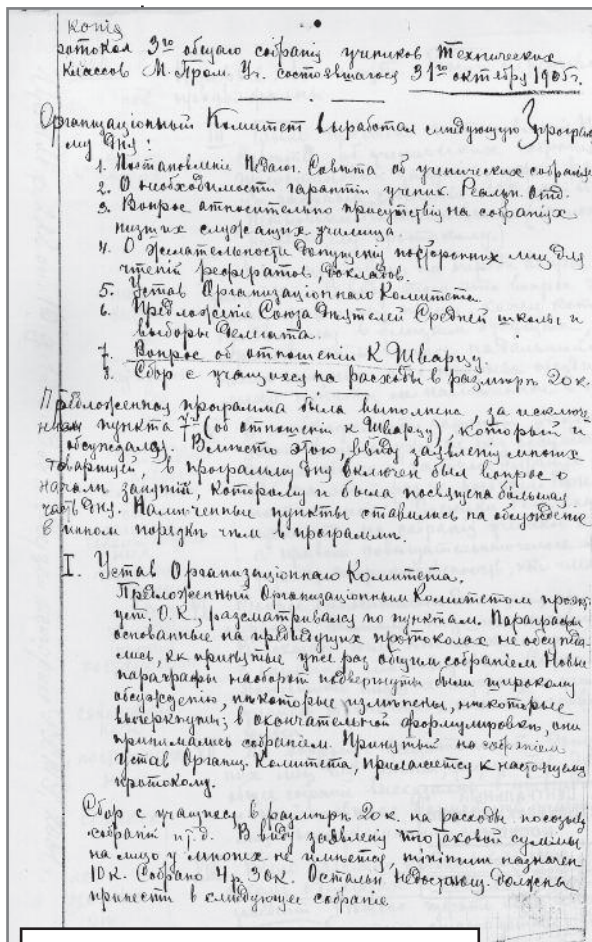 Копія
ротокол 3го общаго собранія учениковъ Техническихъ
классов М. Пром. Уч. состоявшагося 31го октября 1905 г.
Организаціонный Комитет выработал слѣдующую програм
му дня:
1. Постановленіе Педагог. Совѣта об ученических собраніях
2. О необходимости гарантіи ученик. Реальн. отд.
3. Вопрос относительно присутствія на собраніях
низших служащих училища.
4. О желательности допущенія посторонних лиц для
чтеній рефератов, докладов.
5. Устав Организаціоннаго Комитета.
6. Предложеніе Союза Дѣятелей Средней школы и
выборы делегата.
7. Вопрос об отношеніи к Шварцу.
8. Сбор с учащихся на расходы в размѣрѣ 20 к.
Предложенная программа была выполнена, за исключ
ніем пункта 7го (об отношеніи к Шварцу), который и
обсуждался. Вмѣсто этого, ввиду заявленія многих
товарищей, в программу дня включен был вопрос о
началѣ занятій, которому и была посвящена большая
часть дня. Намѣченные пункты ставились на обсужденіе
в ином порядкѣ чѣм в программѣ.
I. Устав Организаціоннаго Комитета.
Предложенный Организаціонным Комитетом проэкт
уст. О. К., разсматривался по пунктам. Параграфы
основанные на предыдущих протоколах не обсужда-
лись, как принятые уже раз общим собраніем. Новые
параграфы наоборот подвергнуты были широкому
обсужденію, нѣкоторые измѣнены, нѣкоторые
вычеркнуты; в окончательной формулировкѣ, они
принимались собраніем. Принятый на собраніи
Устав Организ. Комитета, прилагается к настоящему
протоколу.
Сбор с учащихся в размѣрѣ 20 к. на расходы по созыву
собраній и т. д. В виду заявленія что таковой суммы
на лицо у многих не имѣется, minimum назначен
10 к. Собрано 4 р. 30 к. Остальн. недостающ. должны
принести в слѣдующее собраніе